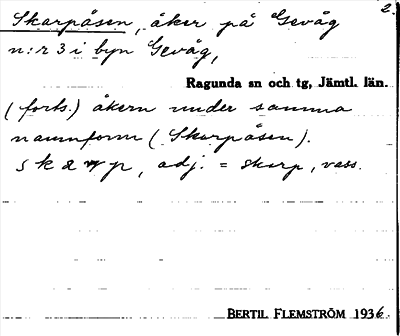 2.
Skarpåsen, åker på Gevåg
n:r 3 i byn Gevåg,
Ragunda sn och tg, Jämtl. län.
(forts.) åkern under samma
namnform (Skarpåsen).
adj. = skarp, vass.
BERTIL FLEMSTRÖM 1936.